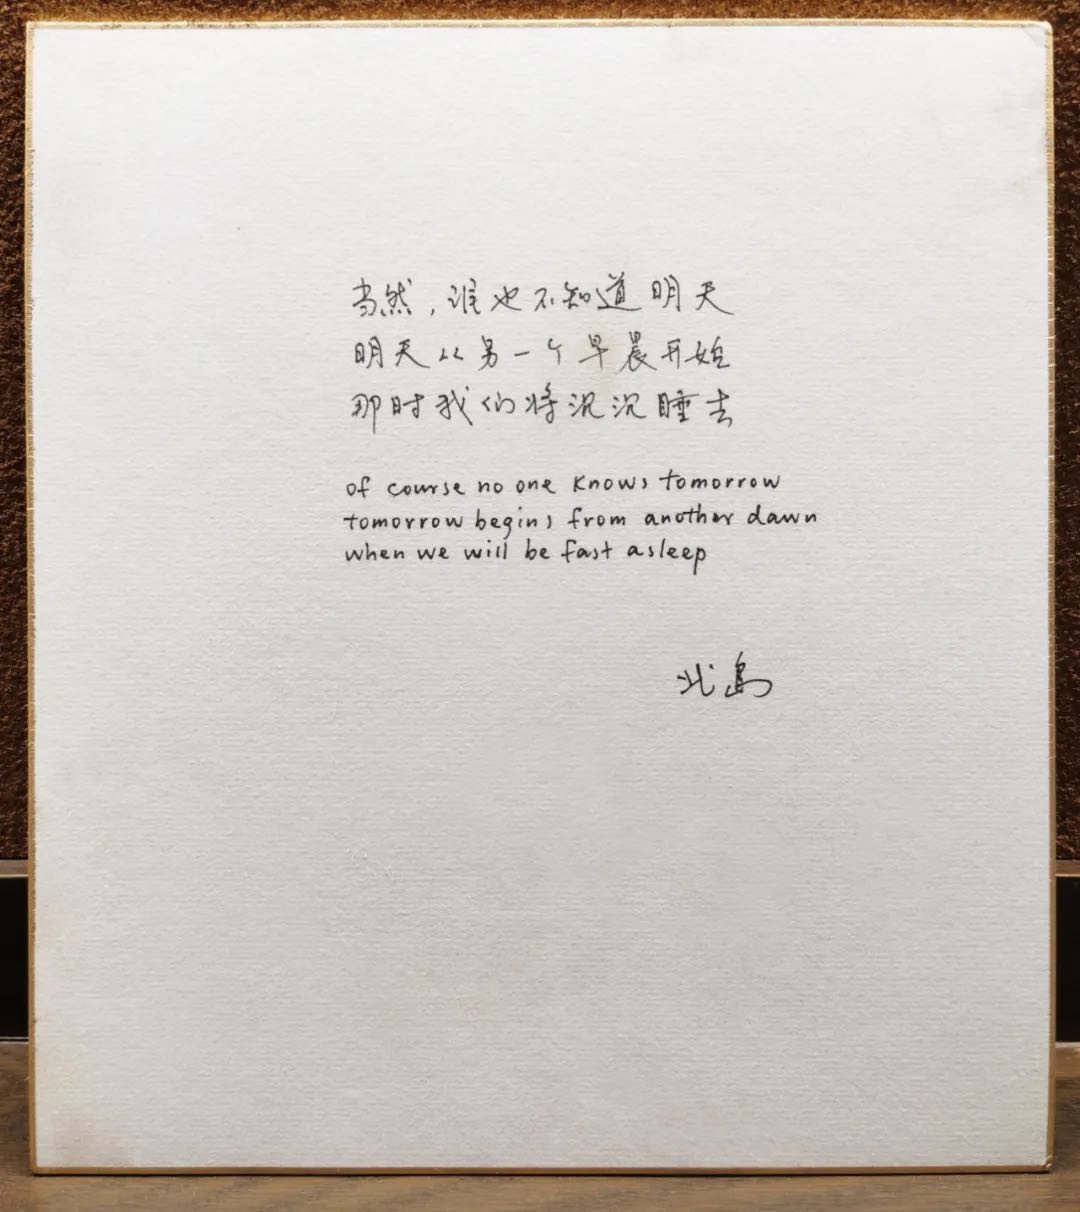 当然,谁也不知道明天
明天从另一个早晨开始
那时我们将沉沉睡去
of course no one knows tomorrow
tomorrow begins from another dawn
when we will be fast asleep
北岛